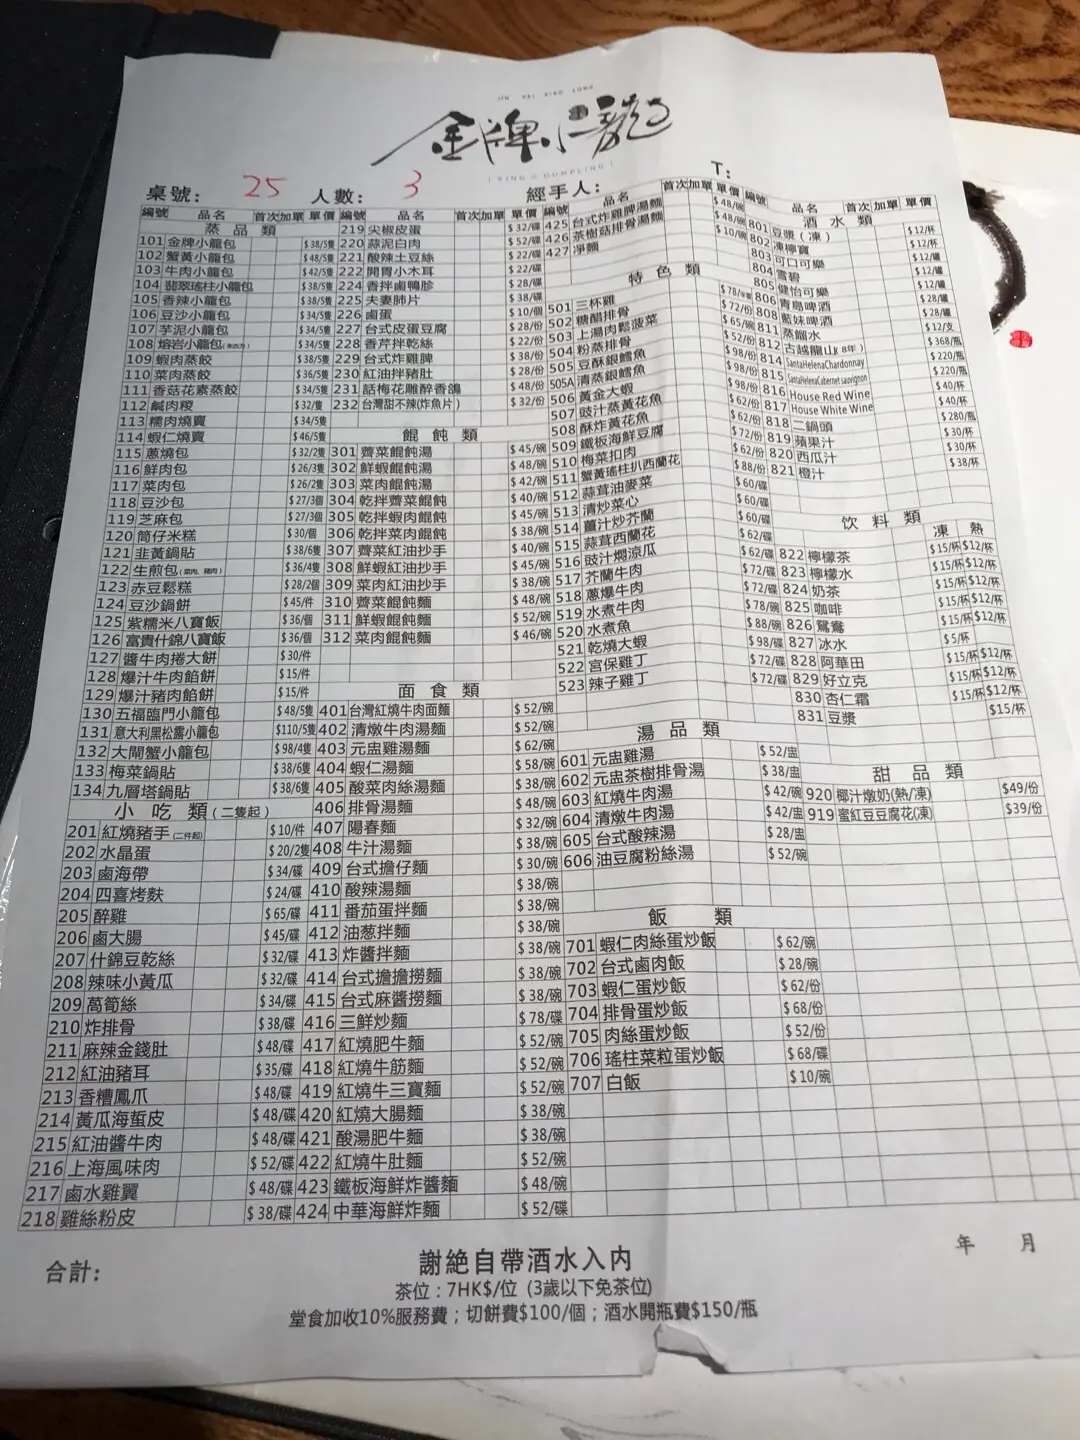 JIN PAI XIAO LONG
金牌小龍
KING'S DUMPLING
桌號: 25 人數: 3 經手人: T:
編號 品名 首次 加單 單價
蒸品類
101 金牌小籠包 $38/5隻
102 蟹黃小籠包 $48/5隻
103 牛肉小籠包 $42/5隻
104 翡翠瑤柱小籠包 $38/5隻
105 香辣小籠包 $38/5隻
106 豆沙小籠包 $34/5隻
107 芋泥小籠包 $34/5隻
108 熔岩小籠包 $34/5隻
109 蝦肉蒸餃 $38/5隻
110 菜肉蒸餃 $36/5隻
111 香菇花素蒸餃 $34/5隻
112 鹹肉糉 $32/隻
113 糯肉燒賣 $34/5隻
114 蝦仁燒賣 $46/5隻
115 蔥燒包 $32/2隻
116 鮮肉包 $26/3隻
117 菜肉包 $26/2隻
118 豆沙包 $27/3個
119 芝麻包 $27/3個
120 筒仔米糕 $30/個
121 韭黃鍋貼 $38/6隻
122 生煎包(菜肉、豬肉) $36/4隻
123 赤豆鬆糕 $28/2個
124 豆沙鍋餅 $45/件
125 紫糯米八寶飯 $36/個
126 富貴什錦八寶飯 $36/個
127 醬牛肉捲大餅 $30/件
128 爆汁牛肉餡餅 $15/件
129 爆汁豬肉餡餅 $15/件
130 五福臨門小籠包 $48/5隻
131 意大利黑松露小籠包 $110/5隻
132 大閘蟹小籠包 $98/4隻
133 梅菜鍋貼 $38/6隻
134 九層塔鍋貼 $38/6隻
小吃類(二隻起)
201 紅燒豬手(二件起) $10/件
202 水晶蛋 $20/2隻
203 鹵海帶 $34/碟
204 四喜烤麩 $24/碟
205 醉雞 $65/碟
206 鹵大腸 $45/碟
207 什錦豆乾絲 $32/碟
208 辣味小黃瓜 $32/碟
209 萵筍絲 $34/碟
210 炸排骨 $38/碟
211 麻辣金錢肚 $48/碟
212 紅油豬耳 $35/碟
213 香糟鳳爪 $48/碟
214 黃瓜海蜇皮 $48/碟
215 紅油醬牛肉 $48/碟
216 上海風味肉 $52/碟
217 鹵水雞翼 $48/碟
218 雞絲粉皮 $38/碟
編號 品名 首次 加單 單價
219 尖椒皮蛋 $32/碟
220 蒜泥白肉 $52/碟
221 酸辣土豆絲 $22/碟
222 開胃小木耳 $22/碟
224 香拌鹵鴨胗 $28/碟
225 夫妻肺片 $38/碟
226 鹵蛋 $10/個
227 台式皮蛋豆腐 $28/份
228 香芹拌乾絲 $22/份
229 台式炸雞脾 $38/份
230 紅油拌豬肚 $28/份
231 話梅花雕醉香鴿 $48/份
232 台灣甜不辣(炸魚片) $32/份
餛飩類
301 薺菜餛飩湯 $45/碗
302 鮮蝦餛飩湯 $48/碗
303 菜肉餛飩湯 $42/碗
304 乾拌薺菜餛飩 $40/碗
305 乾拌蝦肉餛飩 $45/碗
306 乾拌菜肉餛飩 $38/碗
307 薺菜紅油抄手 $40/碗
308 鮮蝦紅油抄手 $45/碗
309 菜肉紅油抄手 $38/碗
310 薺菜餛飩麵 $48/碗
311 鮮蝦餛飩麵 $52/碗
312 菜肉餛飩麵 $46/碗
面食類
401 台灣紅燒牛肉面麵 $52/碗
402 清燉牛肉湯麵 $52/碗
403 元盅雞湯麵 $62/碗
404 蝦仁湯麵 $58/碗
405 酸菜肉絲湯麵 $38/碗
406 排骨湯麵 $48/碗
407 陽春麵 $32/碗
408 牛汁湯麵 $38/碗
409 台式擔仔麵 $30/碗
410 酸辣湯麵 $38/碗
411 番茄蛋拌麵 $38/碗
412 油葱拌麵 $38/碗
413 炸醬拌麵 $38/碗
414 台式擔擔撈麵 $38/碗
415 台式麻醬撈麵 $38/碗
416 三鮮炒麵 $78/碟
417 紅燒肥牛麵 $52/碗
418 紅燒牛筋麵 $52/碗
419 紅燒牛三寶麵 $52/碗
420 紅燒大腸麵 $38/碗
421 酸湯肥牛麵 $38/碗
422 紅燒牛肚麵 $52/碗
423 鐵板海鮮炸醬麵 $48/碗
424 中華海鮮炸麵 $52/碟
編號 品名 首次 加單 單價
425 台式炸雞脾湯麵 $48/碗
426 茶樹菇排骨湯麵 $48/碗
427 淨麵 $10/碗
特色類
501 三杯雞
502 糖醋排骨
503 上湯肉鬆菠菜
504 粉蒸排骨
505 豆酥銀鱈魚
505A 清蒸銀鱈魚
506 黃金大蝦
507 豉汁蒸黃花魚
508 酥炸黃花魚
509 鐵板海鮮豆腐
510 梅菜扣肉
511 蟹黃瑤柱扒西蘭花
512 蒜茸油麥菜
513 清炒菜心
514 薑汁炒芥蘭
515 蒜茸西蘭花
516 豉汁燜涼瓜
517 芥蘭牛肉
518 蔥爆牛肉
519 水煮牛肉
520 水煮魚
521 乾燒大蝦
522 宮保雞丁
523 辣子雞丁
$78/半隻
$72/份
$65/碗
$52/份
$98/份
$98/份
$62/份
$62/份
$72/份
$88/份
$60/碟
$60/碟
$60/碟
$62/碟
$62/碟
$72/碟
$72/碟
$78/碗
$88/碗
$98/碟
$72/碟
$72/碟
湯品類
601 元盅雞湯 $52/盅
602 元盅茶樹排骨湯 $38/盅
603 紅燒牛肉湯 $42/碗
604 清燉牛肉湯 $42/盅
605 台式酸辣湯 $28/盅
606 油豆腐粉絲湯 $52/碗
飯類
701 蝦仁肉絲蛋炒飯 $62/碗
702 台式鹵肉飯 $28/碗
703 蝦仁蛋炒飯 $62/份
704 排骨蛋炒飯 $68/份
705 肉絲蛋炒飯 $52/份
706 瑤柱菜粒蛋炒飯 $68/碟
707 白飯 $10/碗
編號 品名 首次 加單 單價
酒水類
801 豆漿(凍)
802 凍檸寶
803 可口可樂
804 雪碧
805 健怡可樂
806 青島啤酒
808 藍妹啤酒
811 蒸餾水
812 古越龍山(8年)
814 SantaHelenaChardonnay
815 SantaHelenaCabernet sauvignon
816 House Red Wine
817 House White Wine
818 二鍋頭
819 蘋果汁
820 西瓜汁
821 橙汁
$12/杯
$12/杯
$12/罐
$12/罐
$12/罐
$28/罐
$12/支
$368/瓶
$220/瓶
$220/瓶
$40/杯
$40/杯
$280/瓶
$30/杯
$30/杯
$38/杯
饮料類
凍 熱
822 檸檬茶 $15/杯 $12/杯
823 檸檬水 $15/杯 $12/杯
824 奶茶 $15/杯 $12/杯
825 咖啡 $15/杯 $12/杯
826 鴛鴦 $15/杯 $12/杯
827 冰水 $5/杯
828 阿華田 $15/杯 $12/杯
829 好立克 $15/杯 $12/杯
830 杏仁霜 $15/杯 $12/杯
831 豆漿 $15/杯
甜品類
920 椰汁燉奶(熱/凍) $49/份
919 蜜紅豆豆腐花(凍) $39/份
合計:
年 月
謝絕自帶酒水入内
茶位：7HK$/位 (3歲以下免茶位)
堂食加收10%服務費；切餅費$100/個；酒水開瓶費$150/瓶